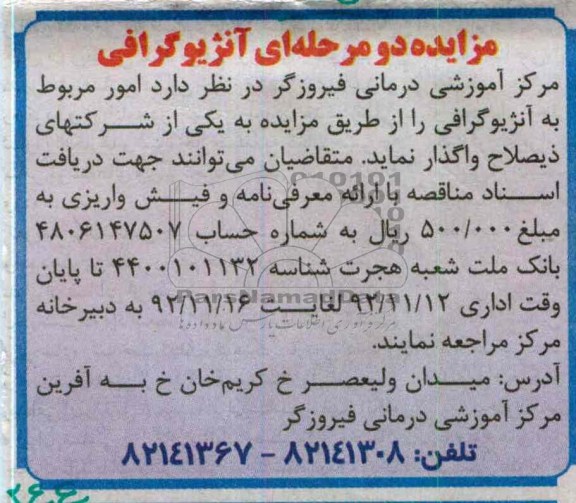 مزایده دو مرحله‌ای آنژیوگرافی
مرکز آموزشی درمانی فیروزگر در نظر دارد امور مربوط
به آنژیوگرافی را از طریق مزایده به یکی از شرکتهای
ذیصلاح واگذار نماید. متقاضیان می‌توانند جهت دریافت
اسناد مناقصه با ارائه معرفی‌نامه و فیش واریزی به
مبلغ ۵۰۰/۰۰۰ ریال به شماره حساب ۴۸۰۶۱۴۷۵۰۷
بانک ملت شعبه هجرت شناسه ۴۴۰۰۱۰۱۱۳۲ تا پایان
وقت اداری ۹۲/۱۱/۱۲ لغایت ۹۲/۱۱/۱۶ به دبیرخانه
مرکز مراجعه نمایند.
آدرس: میدان ولیعصر خ کریم‌خان خ به آفرین
مرکز آموزشی درمانی فیروزگر
تلفن: ۸۲۱۴۱۳۰۸ - ۸۲۱۴۱۳۶۷
ParsNamadData